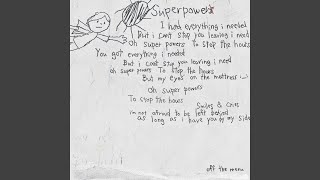 Superpowers
I had everything i needed
But i cant stop you leaving i need
Oh super powers To stop the hours
You got everything i needed
But i cant stop you leaving i need
oh super powers To stop the hours
But my eyes on the mattress
Oh super powers
To stop the hours
Smiles & cries
im not afraid to be left behind
as long as i have you by my side
off the menu